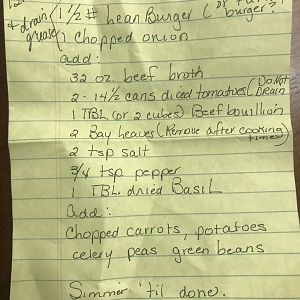 & drain
grease
1 1/2 # Lean Burger (or
burger?
1 Chopped onion
add:
32 oz. beef broth
2 - 14 1/2 cans diced tomatoes (Do Not
Drain
1 TBL (or 2 cubes) Beef bouillion
2 Bay Leaves (Remove after cooking
time)
2 tsp salt
3/4 tsp pepper
1 TBL. dried Basil
add:
Chopped carrots, potatoes
celery peas green beans
Simmer 'til done.